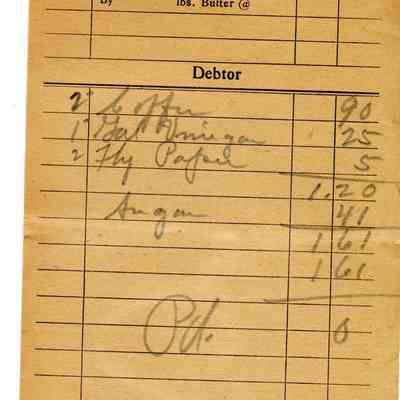 By lbs. Butter @
Debtor
2 Coffee 90
1 Gal Viniegar 25
2 Fly Paper 5
1.20
Sugar 41
1 61
1 61
Pd. 0